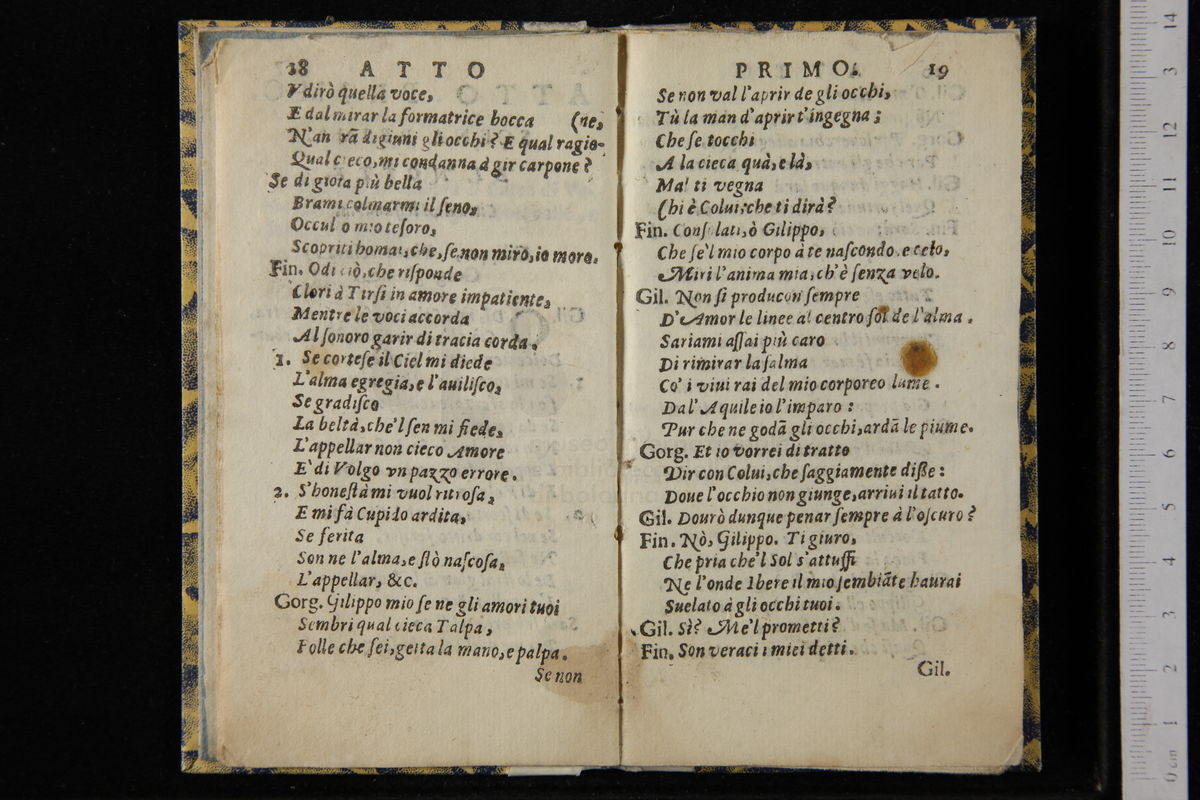 18 ATTO
Vdirò quella voce,
E dal mirar la formatrice bocca (ne,
N'an rã digiuni gli occhi? E qual ragio-
Qual cieco, mi condanna à gir carpone?
Se di gioia più bella
Brami colmarmi il seno,
Occul o mio tesoro,
Scopriti homai, che, se non miro, io moro.
Fin. Odi ciò, che risponde
Clori à Tirsi in amore impatiente,
Mentre le voci accorda
Al sonoro garir di tracia corda.
1. Se cortese il Ciel mi diede
L'alma egregia, e l'auilisco,
Se gradisco
La beltà, che'l sen mi fiede,
L'appellar non cieco Amore
E' di Volgo vn pazzo errore.
2. S'honestà mi vuol ritrosa,
E mi fà Cupido ardita,
Se ferita
Son ne l'alma, e stò nascosa,
L'appellar, &c.
Gorg. Gilippo mio se ne gli amori tuoi
Sembri qual cieca Talpa,
Folle che sei, getta la mano, e palpa.
Se non
PRIMO. 19
Se non val l'aprir de gli occhi,
Tù la man d'aprir t'ingegna;
Che se tocchi
A la cieca quà, e là,
Mal ti vegna
Chi è Colui: che ti dirà?
Fin. Consolati, ò Gilippo,
Che se'l mio corpo à te nascondo, e celo,
Miri l'anima mia, ch'è senza velo.
Gil. Non si producon sempre
D'Amor le linee al centro sol de l'alma.
Sariami assai più caro
Di rimirar la salma
Co' i viui rai del mio corporeo lume.
Dal' Aquile io l'imparo:
Pur che ne godã gli occhi, ardã le piume.
Gorg. Et io vorrei di tratto
Dir con Colui, che saggiamente disse:
Doue l'occhio non giunge, arriui il tatto.
Gil. Dourò dunque penar sempre à l'oscuro?
Fin. Nò, Gilippo. Ti giuro,
Che pria che'l Sol s'attuffi
Ne l'onde Ibere il mio sembiãte haurai
Suelato à gli occhi tuoi.
Gil. Sì? Me'l prometti?
Fin. Son veraci i miei detti.
Gil.